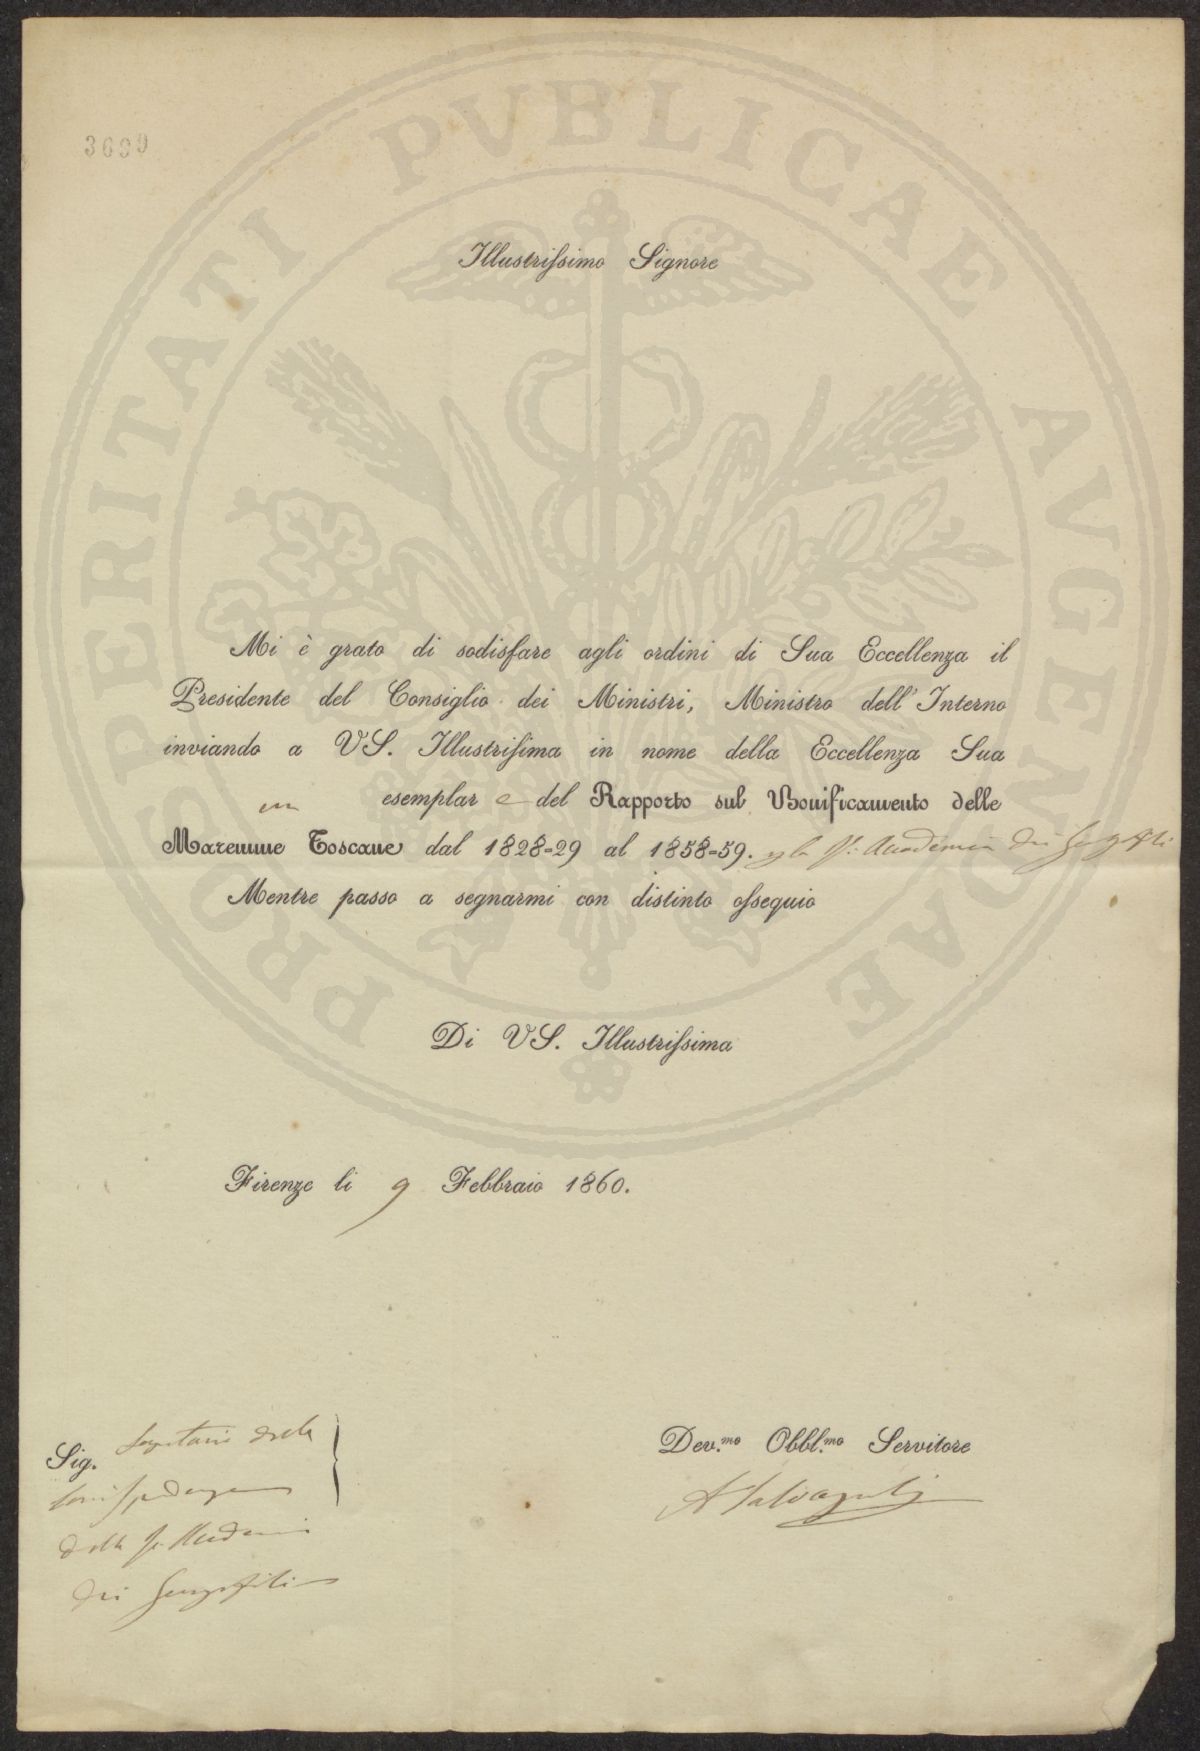 PROSPERITATI PVBLICAE AVGENDAE
3699
Illustrissimo Signore
Mi è grato di sodisfare agli ordini di Sua Eccellenza il
Presidente del Consiglio dei Ministri, Ministro dell'Interno
inviando a VS. Illustrissima in nome della Eccellenza Sua
un esemplare del Rapporto sul Bonificamento delle
Maremme Toscane dal 1828=29 al 1858=59. p la R. Accademia dei Georgofili
Mentre passo a segnarmi con distinto ossequio
Di VS. Illustrissima
Firenze li 9 Febbraio 1860.
Sig. Segretario della
Corrispondenza
della R. Accademia
dei Georgofili
Dev.mo Obbl.mo Servitore
A Salvagnoli